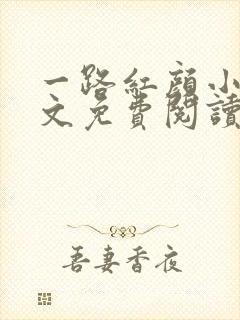 一路红颜小
文免費閱讀
吾妻香夜